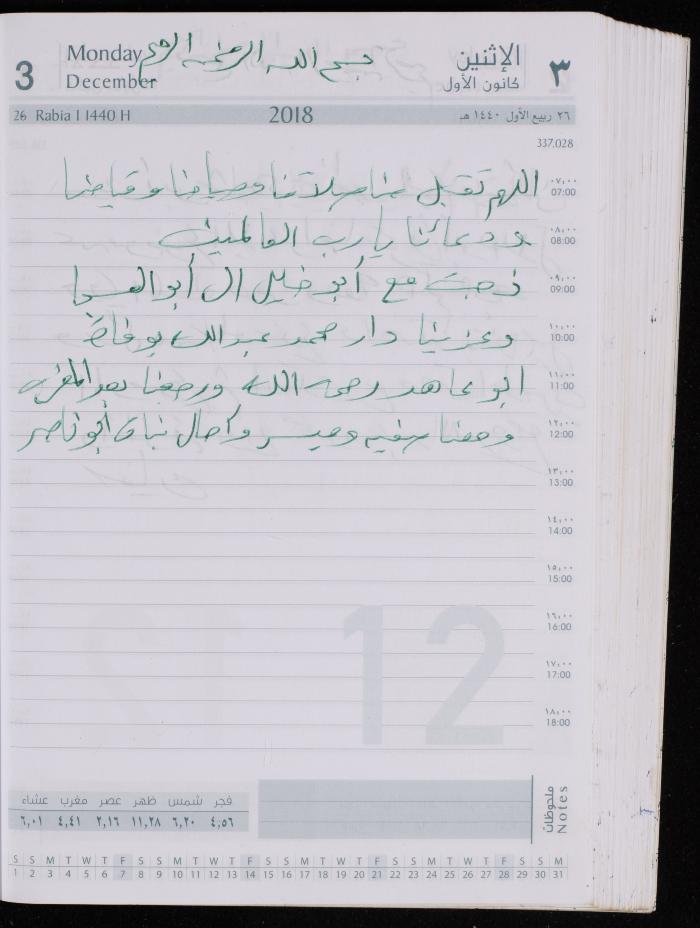 3
Monday
December
بسم الله الرحمن الرحيم
الإثنين
كانون الأول
٣
26 Rabia I 1440 H
2018
٢٦ ربيع الأول ١٤٤٠ هـ
337.028
اللهم تقبل منا صلاتنا وصيامنا وقيامنا
٠٧:٠٠
07:00
ودعائنا يا رب العالمين
٠٨:٠٠
08:00
ذهبت مع أبو خليل ال أبو
٠٩:٠٠
09:00
وعزينا دار محمد عبدالله بوفاة
١٠:٠٠
10:00
ابو مجاهد رحمه الله ورجعنا بعد المغرب
١١:٠٠
11:00
ومعنا سفيه وميسر أبو ناصر
١٢:٠٠
12:00
١٣:٠٠
13:00
١٤:٠٠
14:00
١٥:٠٠
15:00
١٦:٠٠
16:00
١٧:٠٠
17:00
١٨:٠٠
18:00
12
فجر شمس ظهر عصر مغرب عشاء
٤,٥٦ ٦,٢٠ ١١,٢٨ ٢,١٦ ٤,٤١ ٦,٠١
ملحوظات
Notes
S S M T W T F S S M T W T F S S M T W T F S S M T W T F S S M
1 2 3 4 5 6 7 8 9 10 11 12 13 14 15 16 17 18 19 20 21 22 23 24 25 26 27 28 29 30 31